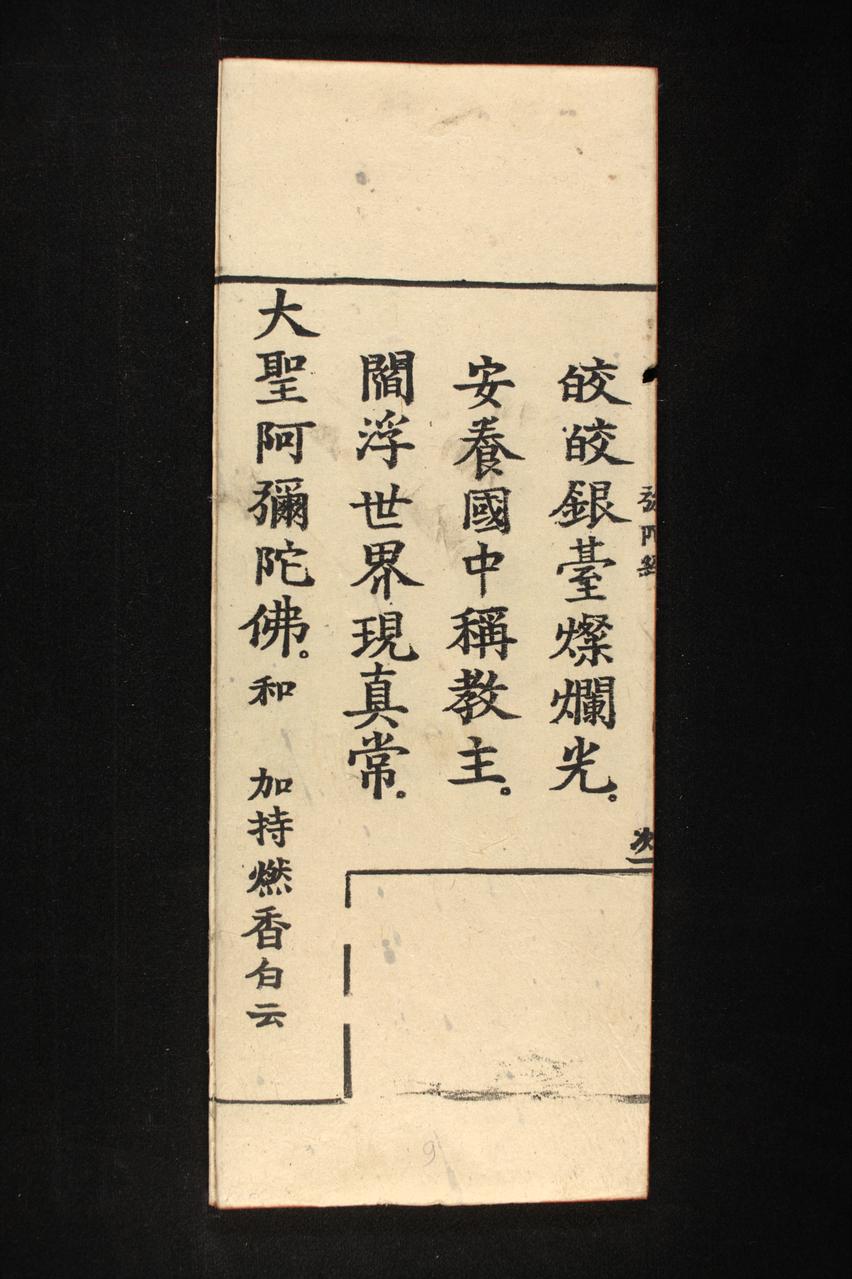 皎皎銀臺燦爛光。
安養國中稱教主。
閻浮世界現真常。
大聖阿彌陀佛。和 加持燃香白云
9